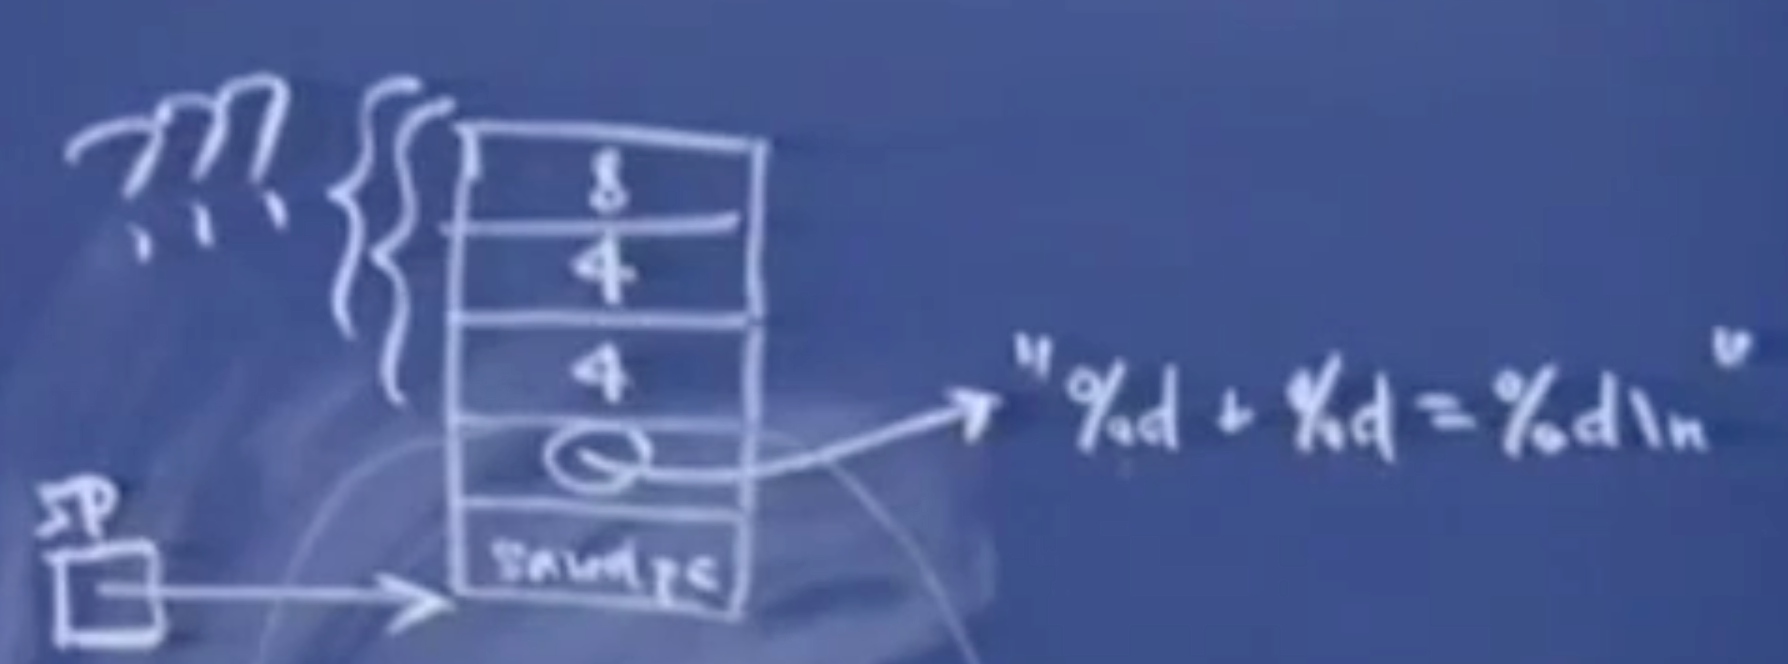 ???
8
4
4
"%d + %d = %d\n"
SP
saved pc